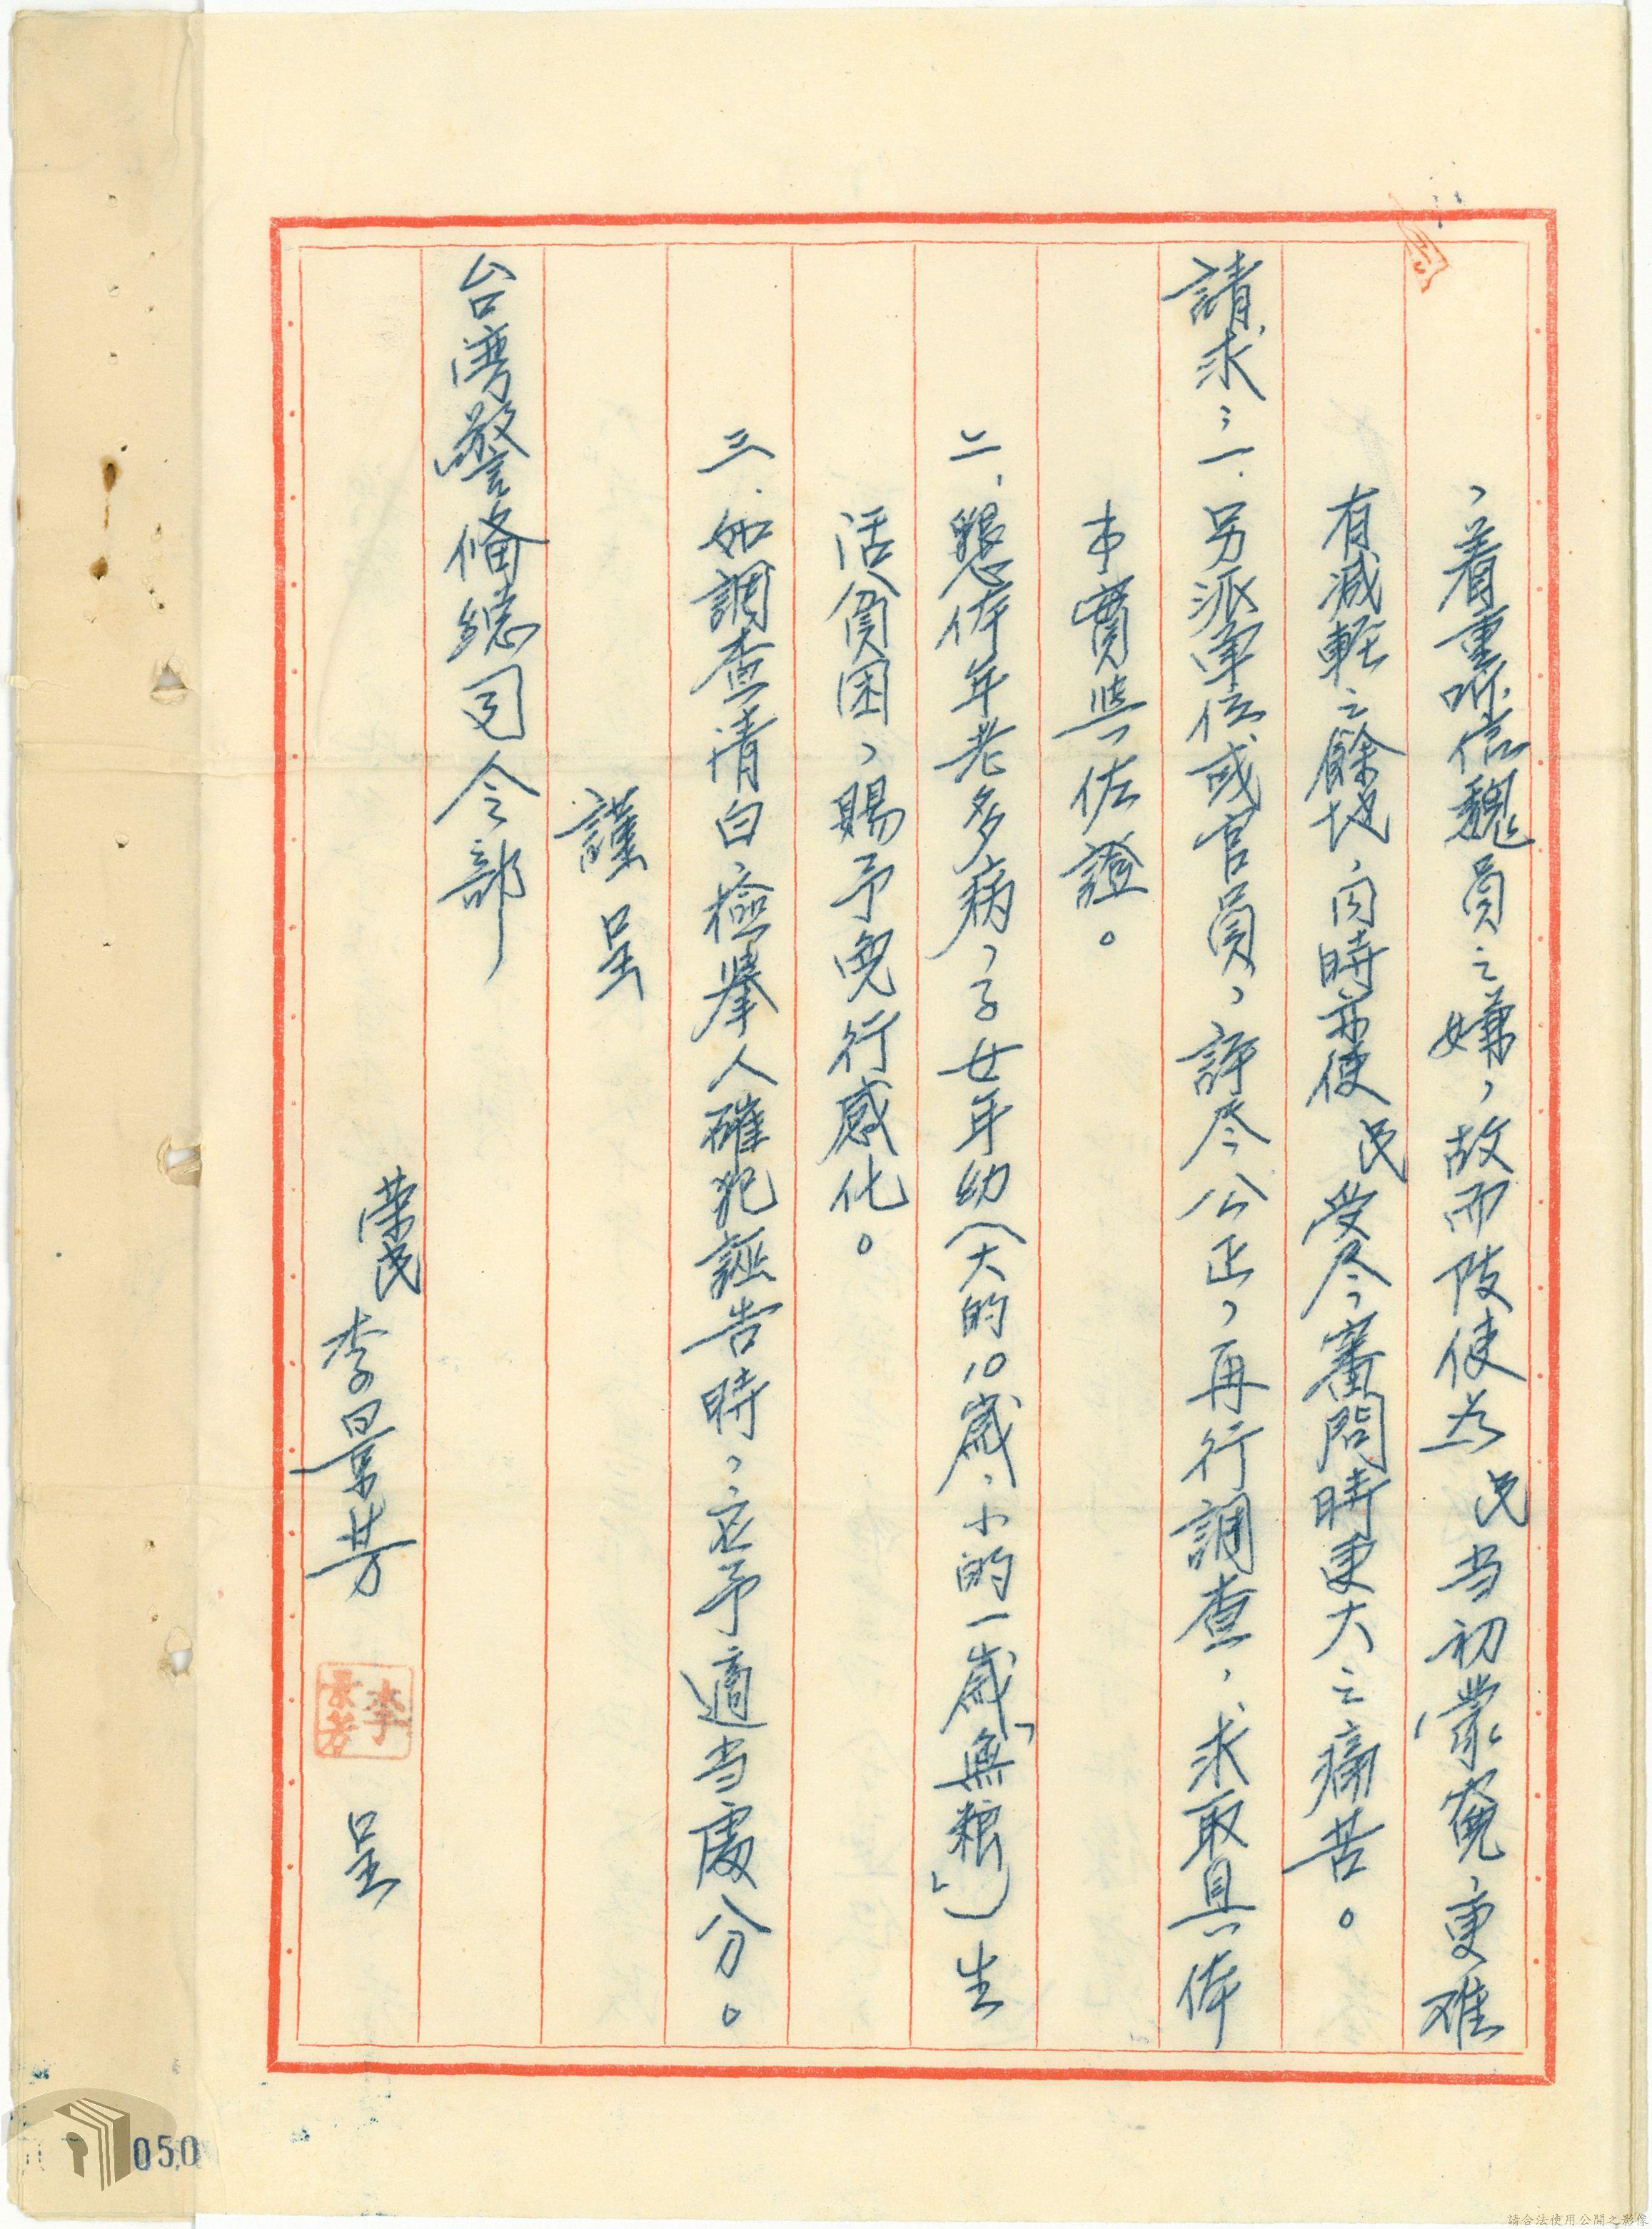 、着重听信魏員之嫌，故而陂使為民当初蒙寃，更难
有減輕之餘地，同時並使民受尽審問時更大之痛苦。
請求：一．另派單位或官員，評尽公正，再行調查，求取具体
事實與佐證。
二．懇体年老多病，子女年幼（大的10歲，小的一歲「無粮」）生
活貧困，賜予免行感化。
三．如調查清白，檢舉人確犯誣告時，应予適当處分。
謹呈
台灣警備總司令部
榮民 李景芳 李景芳 呈
050
請合法使用公開之影像